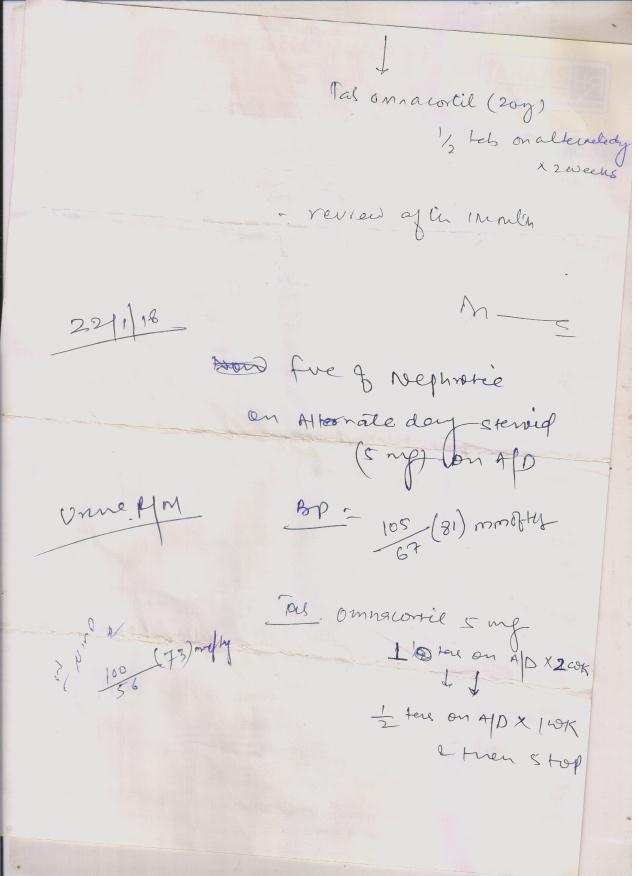 ↓
Tab omnacortil (20mg)
1/2 tab on alternate day
x 2 weeks
- review after 1 month
22/1/18
fuc of Nephrotic
on Alternate day steroid
(5 mg) on A/D
Urine R/M
BP = 105/67 (81) mmofHg
Tab. Omnacortil 5 mg
1 tab on A/D x 2 wk
100/56 (73) mmofHg
↓ ↓
1/2 tab on A/D x 1 wk
& then stop